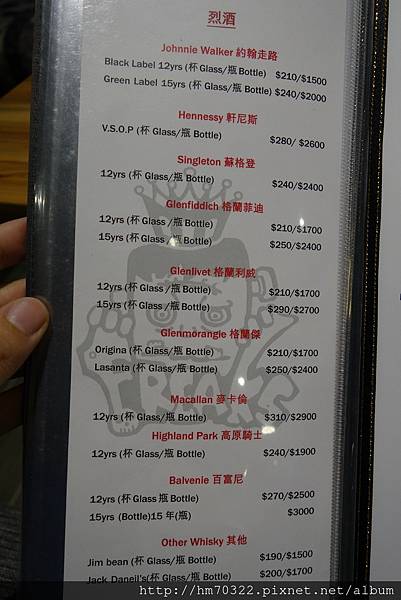 烈酒
Johnnie Walker 約翰走路
Black Label 12yrs (杯 Glass/瓶 Bottle) $210/$1500
Green Label 15yrs (杯 Glass/瓶 Bottle) $240/$2000
Hennessy 軒尼斯
V.S.O.P (杯 Glass/瓶 Bottle) $280/ $2600
Singleton 蘇格登
12yrs (杯 Glass/瓶 Bottle) $240/$2400
Glenfiddich 格蘭菲迪
12yrs (杯 Glass/瓶 Bottle) $210/$1700
15yrs (杯 Glass/瓶 Bottle) $250/$2400
Glenlivet 格蘭利威
12yrs (杯 Glass/瓶 Bottle) $210/$1700
15yrs (杯 Glass/瓶 Bottle) $290/$2700
Glenmorangie 格蘭傑
Origina (杯 Glass/瓶 Bottle) $210/$1700
Lasanta (杯 Glass/瓶 Bottle) $250/$2400
FREAKS
Macallan 麥卡倫
12yrs (杯 Glass/瓶 Bottle) $310/$2900
Highland Park 高原騎士
12yrs (杯 Glass/瓶 Bottle) $240/$1900
Balvenie 百富尼
12yrs (杯 Glass 瓶 Bottle) $270/$2500
15yrs (Bottle)15 年(瓶) $3000
Other Whisky 其他
Jim bean (杯 Glass/瓶 Bottle) $190/$1500
Jack Daneil's(杯 Glass/瓶 Bottle) $200/$1700
http://hm70322.pixnet.net/album